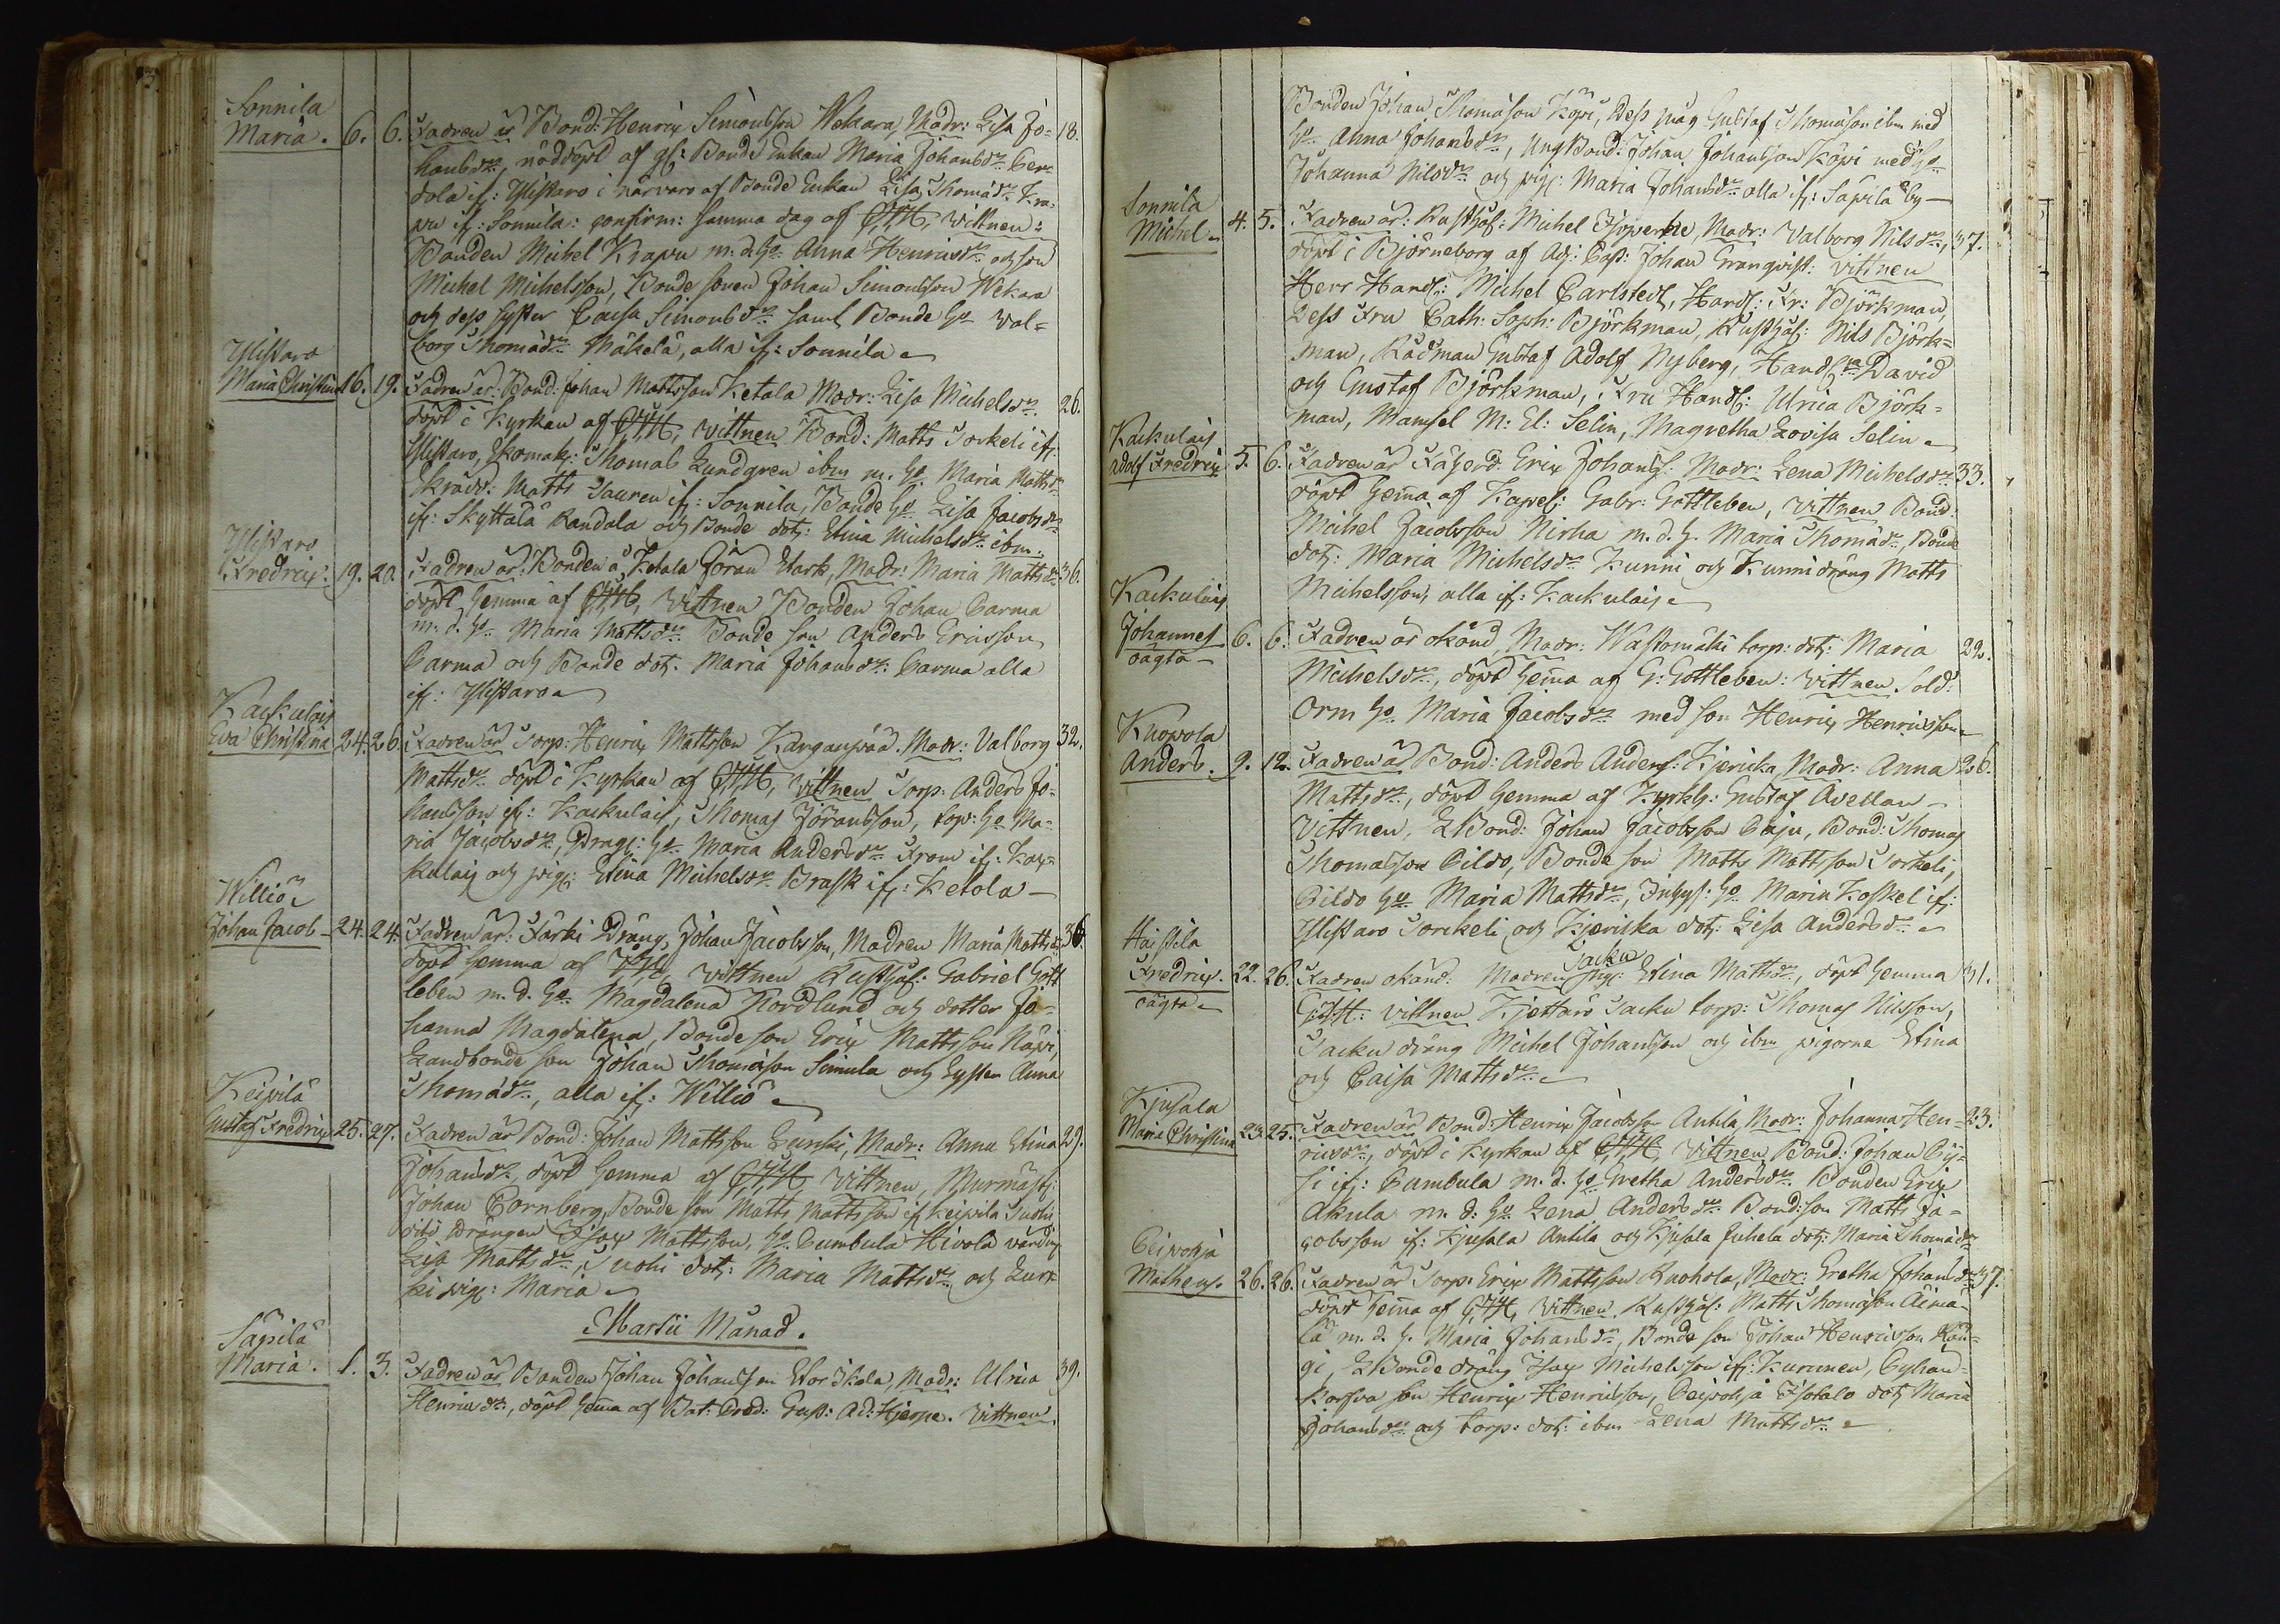 Sonnila
Maria. 6. 6. Fadren är Bond: Henrix Simonsson Wekara, Modr: Lisa Jo= 18.
hansdr, nöddöpt af gl: Bonde Enkan Maria Johansdr
if: Ylistaro i närvaro af Bonde Enkan Lisa Thomædr Kra,
pu if: Sonnila: confirm: samma dag af Vittnen:
Bonden Michel Krapu m. d. Ho Anna Henricsdr och son
Michel Michelsson, Bonde sonen Johan Simonsson Wekara
och dess syster Caisa Simonsdr samt Bonde Ho Val=
borg Thomædr Mäkelä, alla if: Sonnila
Ylistaro
Maria Christina 16. 19. Fadren är: Bond: Johan Mattsson Ketala Modr: Lisa Michelsdr 26.
döpt i Kyrkan af Vittnen Bond: Matts Sorkeli if:
Ylistaro, Skomak: Thomas Lundgren ibm m. Ho. Maria Mattsdr
Skrädd: Matts Sauren if: Sonnila, Bonde Ho Lisa Jacobsdr
if: Skyttälä Randala och Bonde dotr: Stina Michelsdr ibm.
Ylistaro
Fredrix: 19. 20. Fadren är: Bonden å Ketala Jöran Stark, Modr: Maria Mattsdr 36.
döpt hemma af Vittnen Bonden Johan Carma
m. d. Ho Maria Mattsdr Bonde son Anders Ericsson
Carma och Bonde dotr. Maria Johansdr: Carma alla
if: Ylistaro
Kackulais
Eva Christina 24. 26. Fadren är Torp: Henrix Mattsson Kanganpää. Modr: Valborg 32.
Mattsdr döpt i Kyrkan af Vittnen Torp: Anders Jo=
hansson if: Kackulais, Thomas Jöransson, Ho Ma=
ria Jacobsdr, Ho Maria Andersdr From if: Kac=
kulais och pig: Stina Michelsdr Brask if: Ketola
Williö
Johan Jacob 24. 24. Fadren är: Färki Dräng, Johan Jacobsson, Modren Maria Mattsdr 36.
döpt hemma af vittnen Rusthål: Gabriel Gott
leben m. d. Ho Magdalena Nordlund och dotter Jo=
hanna Magdalena, Bonde son Erix Mattsson Näpi,
Landbonde son Johan Thomæsson Simula och syster Anna
Thomædr, alla if: Williö
Keipilä
Gustaf Fredrix 25. 27. Fadren är Bond: Johan Mattsson Lurki, Modr: Anna Stina 29.
Johansdr, döpt hemma af Vittnen, Murmäst:
Johan Cornberg, Bonde son Matts Mattsson if Keipilä
drängen Isax Mattsson, Ho. Cumbula Hivola
Lisa Mattsdr, dotr: Maria Mattsdr och Lur
ki pig: Maria
Martii Månad.
Säpilä
Maria. 1. 3. Fadren är Bonden Johan Johansson Storskola, Modr: Ulrica 39.
Henricsdr, döpt hemma af Bat: Pred: Gust: Ad: Hjerpe. Vittnen
Bonden Johan Thomæson Köpi, Dess måg Gustaf Thomæson ibm med
Ho Anna Johansdr, Ung Bond: Johan Johansson Köpi med Ho
Johanna Nilsdr och pig: Maria Johansdr alla if: Säpilä By
Sonnila
Michel 4. 5. Fadren är: Rusthål: Michel Isopere, Modr: Valborg Nilsdr, 37.
döpt i Björneborg af Adj: Past: Johan Granqvist: Vittnen
Herr Handl: Michel Carlstedt, Handl: Fr: Björkman,
dess Fru Cath: Soph: Björkman, Rusthål: Nils Björk=
man, Rådman Gustaf Adolf Nyberg, Handl: David
och Gustaf Björkman, Fru Handl: Ulrica Björk=
man, Mamsel M: El: Selin, Magretha Lovisa Selin
Kackulais
Adolf Fredrix 5. 6. Fadren är Erix Johanss: Modr: Lena Michelsdr 33.
döpt hemma af Kapel: Gabr: Gottleben, Vittnen Bond:
Michel Jacobsson Nirha m. d. H. Maria Thomædr, Bonde
dotr: Maria Michelsdr Kunni och Kunni dräng Matts
Michelsson, alla if: Kackulais
Kackulais
Johannes 6. 6. Fadren är okänd, Modr: Wastomäki torp: dotr: Maria 22.
oägta
Michelsdr, döpt hemma af G: Gottleben: Vittnen Sold:
Orm Ho Maria Jacobsdr med son Henrix Henricsson
Knopola
Anders. 9. 12. Fadren är Bond: Anders Anderss: Kjerika, Modr: Anna 26.
Mattsdr, döpt hemma af Kyrkh: Gustaf Avellan
Vittnen, LBond: Johan Jacobsson Caju, Bond: Thomas
Thomasson Cildo, Bonde son Matts Mattsson Sorkeli,
Cildo Ho Maria Mattsdr, Inhys: Ho Maria Koskel if:
Ylistaro Sorckeli och Kjerikka dotr: Lisa Andersdr
Haistila
Fredrix. 22. 26. Fadren okänd: Modren Sacku pig: Stina Mattsdr, döpt hemma 31.
oägta
Vittnen Kjettaro Sacku torp: Thomas Nilsson,
Sacku dräng Michel Johansson och ibm pigorna Stina
och Caisa Mattsdr
Kjusala
Maria Christina 23. 25. Fadren är Bond: Henrix Jacobsson Antila, Modr: Johanna Hen= 23.
ricsdr, döpt i Kyrkan af Vittnen Bond: Johan Cy=
si if: Cumbula m. d. Ho Gretha Andersdr Bonden Erix
Akula m. d: Ho Lena Andersdr Bond: son Matts Ja=
cobsson if: Kjusala Antila och Kjusala Juhela dotr: Maria Thomædr
Ceipohja
Matheus. 26. 26. Fadren är Torp: Erix Mattsson Ruohola, Modr: Gretha Johansdr 37.
döpt hemma af Vittnen. Rusthål: Matts Thomæson Äimä=
lä m. d. H. Maria Johansdr, Bonde son Johan Henricsson Kan=
gi, LBonde dräng Isax Michelsson if: Kurunen, Cyhän=
korfva son Henrix Henricsson, Ceipohja Isotalo dotr Maria
Johansdr och torp: dotr: ibm Lena Mattsdr